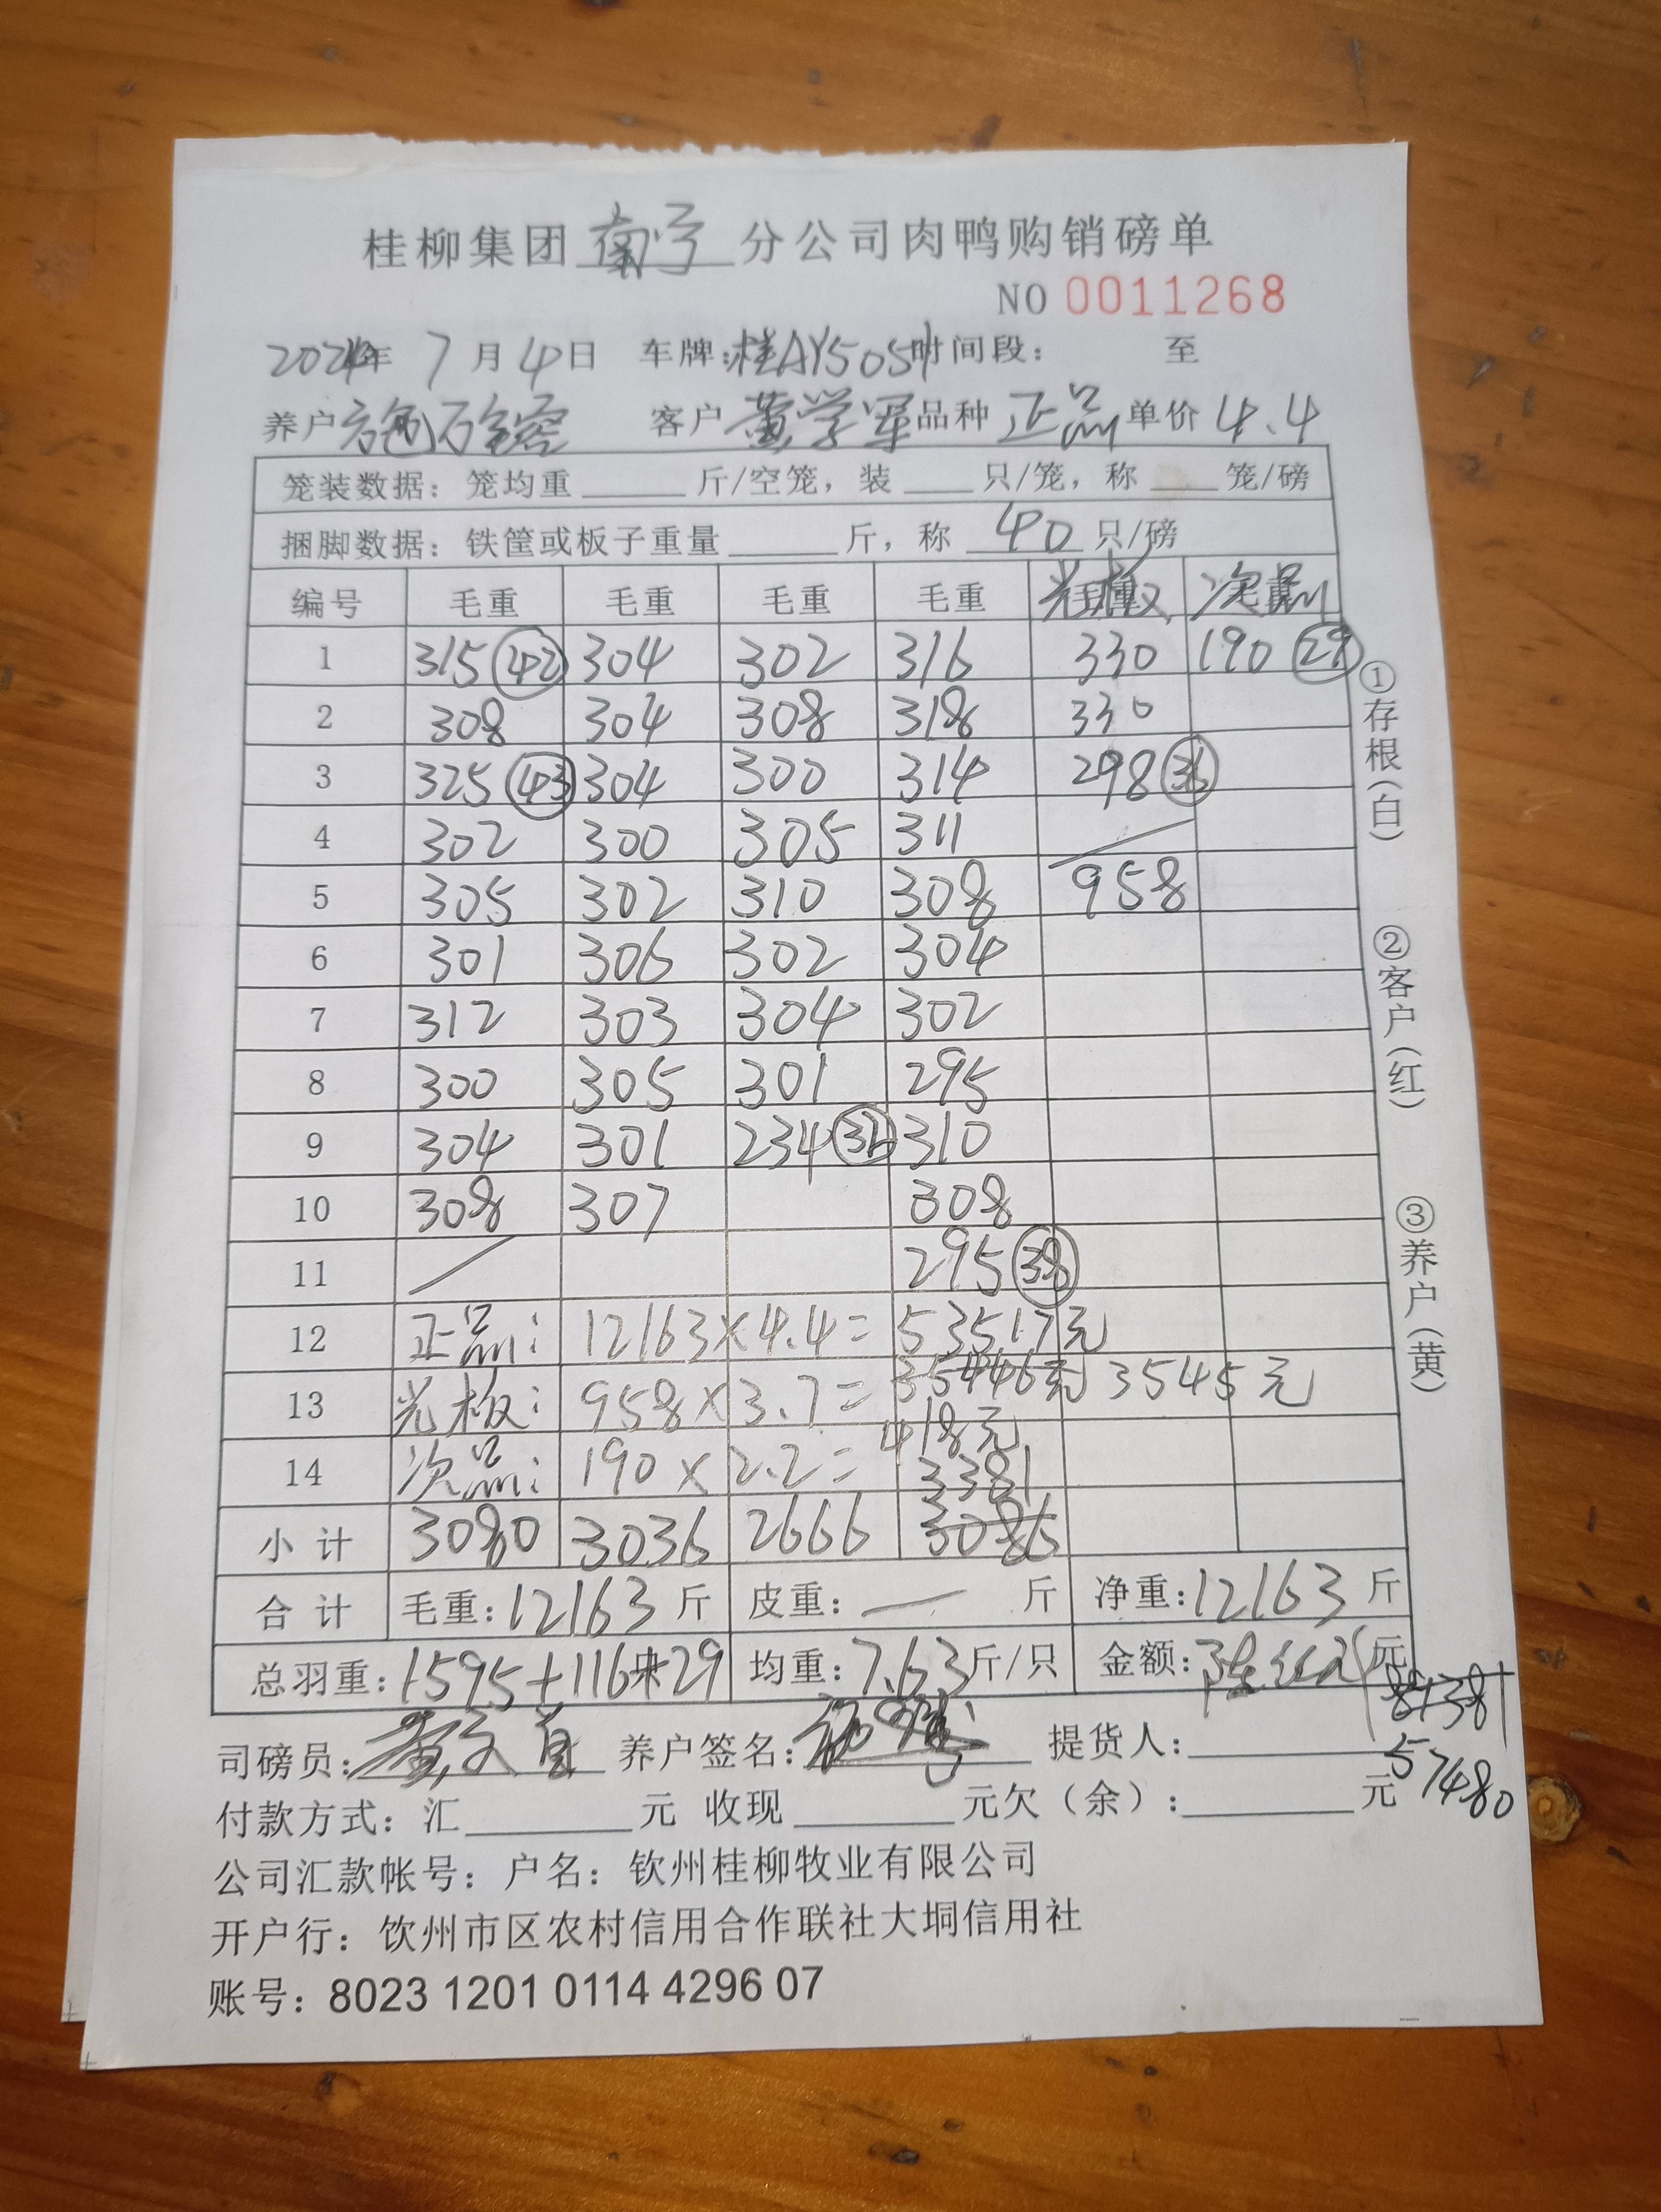 桂柳集团 南宁 分公司肉鸭购销磅单
NO 0011268
2024年 7月4日 车牌:桂AY505 时间段: 至
养户 客户 黄学军 品种 正品 单价 4.4
笼装数据: 笼均重 斤/空笼, 装 只/笼, 称 笼/磅
捆脚数据: 铁筐或板子重量 斤, 称 40 只/磅
编号 毛重 毛重 毛重 毛重 光板 次品
1 315 42 304 302 316 330 190 29
2 308 304 308 318 330
3 325 43 304 300 314 298 36
4 302 300 305 311
5 305 302 310 308 958
6 301 306 302 304
7 312 303 304 302
8 300 305 301 295
9 304 301 234 310
10 308 307 308
11 295 38
12 正品: 12163×4.4= 53517元
13 光板: 958×3.7= 35446元 3545元
14 次品: 190×2.2= 418元
3381
小计 3080 3036 2666 3086
合计 毛重: 12163 斤 皮重: — 斤 净重: 12163 斤
总羽重: 1595+116+29 均重: 7.63 斤/只 金额: 元
57480
司磅员: 养户签名: 提货人:
付款方式: 汇 元 收现 元欠(余): 元
公司汇款帐号: 户名: 钦州桂柳牧业有限公司
开户行: 钦州市区农村信用合作联社大垌信用社
账号: 8023 1201 0114 4296 07
①存根(白)
②客户(红)
③养户(黄)